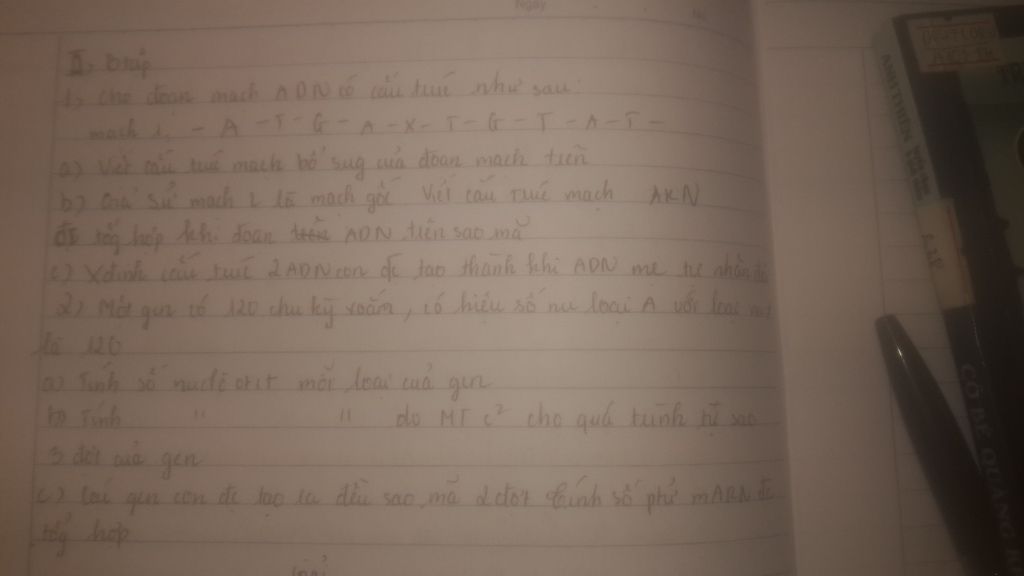 Ngày
II, Btập
1, Cho đoạn mạch ADN có cấu trúc như sau:
mạch 1: - A - T - G - A - X - T - G - T - A - T -
a) Viết cấu trúc mạch bổ sug của đoạn mạch trên
b) Giả sử mạch 1 là mạch gốc Viết cấu trúc mạch ARN
đc tổg hợp khi đoạn ADN trên sao mã
c) Xđịnh cấu trúc 2 ADN con đc tạo thành khi ADN mẹ tự nhân đôi
2) Một gen có 120 chu kỳ xoắn, có hiệu số nu loại A với loại
là 120
a) Tính số nuclêôtit mỗi loại của gen
b) Tính " " do MT c² cho quá trình tự sao
3 đợt của gen
c) Các gen con đc tạo ra đều sao mã 2 đợt tính số ptử mARN đc
tổg hợp
Giải